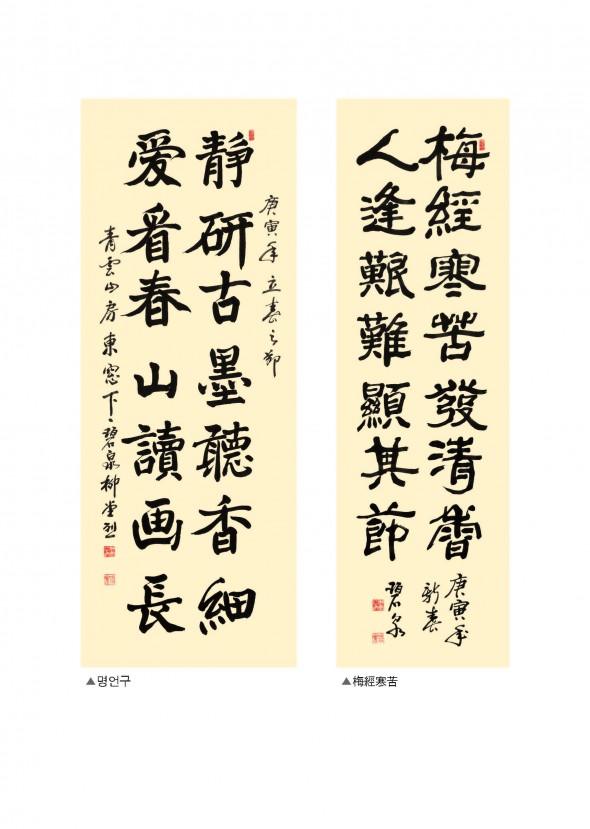 庚寅年 立春之節
靜研古墨聽香細
爱看春山讀画長
青雲山房東窓下 碧泉柳堂烈
▲명언구
梅經寒苦發清香
人逢艱難顯其節
庚寅年
新春
碧泉
▲梅經寒苦